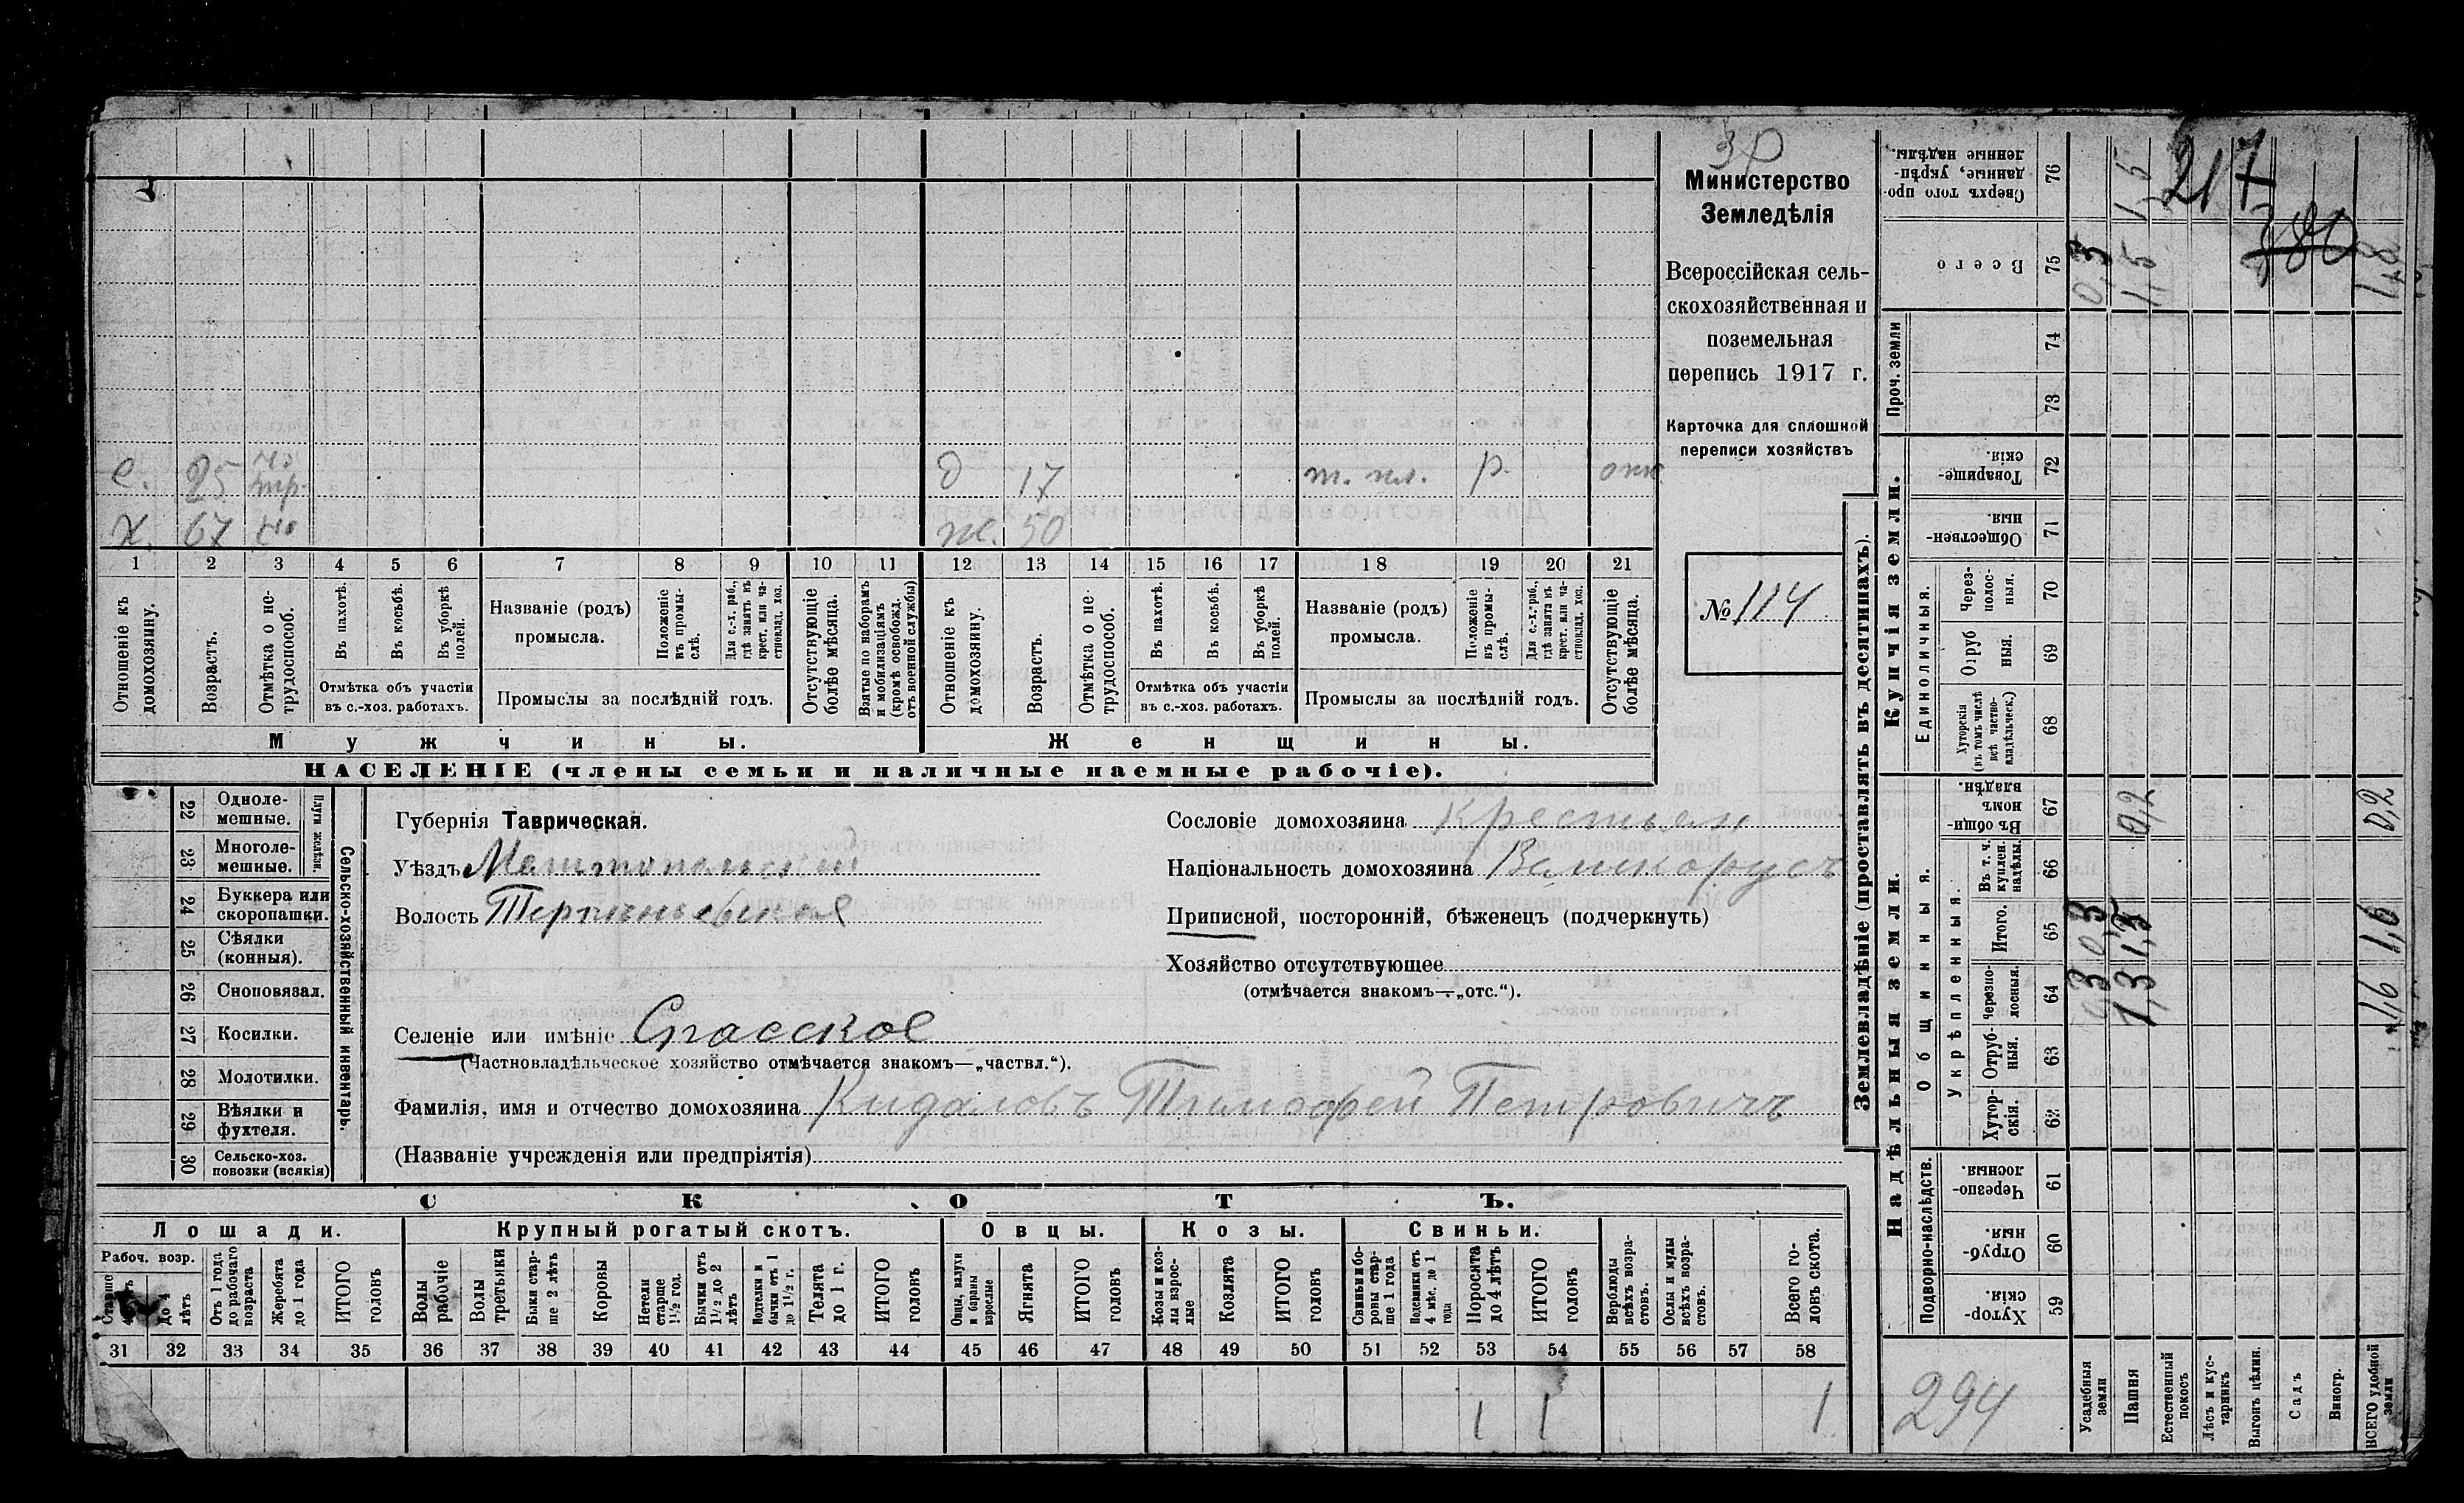 3 р
Министерство
Земледѣлія
Всероссійская сель-
скохозяйственная и
поземельная
перепись 1917 г.
Карточка для сплошной
переписи хозяйствъ
№ 114
с. 25 д 17 т. пл. р.
х. 67 ж. 50
1 2 3 4 5 6 7 8 9 10 11 12 13 14 15 16 17 18 19 20 21
Отношеніе къ домохозяину.
Возрастъ.
Отмѣтка о не-трудоспособ.
Въ пахотѣ.
Въ косьбѣ.
Въ уборкѣ полей.
Отмѣтка объ участіи
въ с.-хоз. работахъ.
Названіе (родъ)
промысла.
Положеніе въ промы-слѣ.
Для с.-х. раб., гдѣ занятъ въ крест. или ча-стновлад. хоз.
Промыслы за послѣдній годъ.
Отсутствующіе болѣе мѣсяца.
Взятые по наборамъ и мобилизаціямъ (кромѣ освобожд. отъ военной службы)
Отношеніе къ домохозяину.
Возрастъ.
Отмѣтка о не-трудоспособ.
Въ пахотѣ.
Въ косьбѣ.
Въ уборкѣ полей.
Отмѣтка объ участіи
въ с.-хоз. работахъ.
Названіе (родъ)
промысла.
Положеніе въ промы-слѣ.
Для с.-х. раб., гдѣ занята въ крест. или ча-стновлад. хоз.
Промыслы за послѣдній годъ.
Отсутствующіе болѣе мѣсяца.
Мужчины.
Женщины.
НАСЕЛЕНІЕ (члены семьи и наличные наемные рабочіе).
22 Однолемешные.
23 Многолемешные.
Плуги желѣзн.
24 Буккера или скоропашки.
25 Сѣялки (конныя).
26 Сноповязал.
27 Косилки.
28 Молотилки.
29 Вѣялки и фухтеля.
30 Сельско-хоз. повозки (всякія)
Сельско-хозяйственный инвентарь.
Губернія Таврическая.
Уѣздъ Мелитопольский
Волость
Селеніе или имѣніе Спасское
(Частновладѣльческое хозяйство отмѣчается знакомъ—„частвл.“).
Фамилія, имя и отчество домохозяина Кидаловъ Тимофей Петровичъ
(Названіе учрежденія или предпріятія)
Сословіе домохозяина Крестьян
Національность домохозяина Великорусъ
Приписной, посторонній, бѣженецъ (подчеркнуть)
Хозяйство отсутствующее
(отмѣчается знакомъ—„отс.“).
СКОТЪ.
Лошади. Крупный рогатый скотъ. Овцы. Козы. Свиньи.
Рабоч. возр.
До 4 лѣтъ
Отъ 1 года до рабочаго возраста
Жеребята до 1 года
ИТОГО головъ
Волы рабочіе
Волы третьяки
Быки стар-ше 2 лѣтъ
Коровы
Нетели старше 1½ год.
Бычки отъ 1½ до 2 лѣтъ
Подтелки и бычки отъ 1 до 1½ г.
Телята до 1 г.
ИТОГО головъ
Овцы, валухи и бараны взрослые
Ягнята
ИТОГО головъ
Козы и коз-лы взрос-лые
Козлята
ИТОГО головъ
Свиньи и бо-ровы стар-ше 1 года
Подсвинки отъ 4 мѣс. до 1 года
Поросята до 4 лѣтъ
ИТОГО головъ
Верблюды всѣхъ возра-стовъ.
Ослы и мулы всѣхъ возра-стовъ.
Всего го-ловъ скота.
31 32 33 34 35 36 37 38 39 40 41 42 43 44 45 46 47 48 49 50 51 52 53 54 55 56 57 58
1 1 1
Землевладѣніе (проставлять въ десятинахъ).
Надѣльныя земли.
Купчія земли.
Проч. земли
Подворно-наслѣдств.
Общинныя.
Укрѣпленныя.
Единоличныя.
Хутор-скія. 59
Отруб-ныя 60
Черезпо-лосныя. 61
Хутор-скія. 62
Отруб-ныя. 63
Черезпо-лосныя. 64
Итого. 65
Въ т. ч. куплен. надѣлы. 66
Въ общи-номъ владѣн. 67
Хуторскія (въ томъ числѣ всѣ частно-владѣльческ.) 68
Отруб ныя. 69
Через-полос-ныя. 70
Обществен-ныя. 71
Товарище-скія. 72
73
74
Всего 75
Сверхъ того про-данные, укрѣп-ленные надѣлы. 76
Усадебныя земли 0,3 0,3 0,3
Пашня 1,3 1,3 0,2 1,5 1,5
Естественный покосъ
Лѣсъ и кус-тарникъ
Выгонъ цѣлин.
Садъ
Виногр.
ВСЕГО удобной земли 1,6 1,6 0,2 1,8
217
380
294